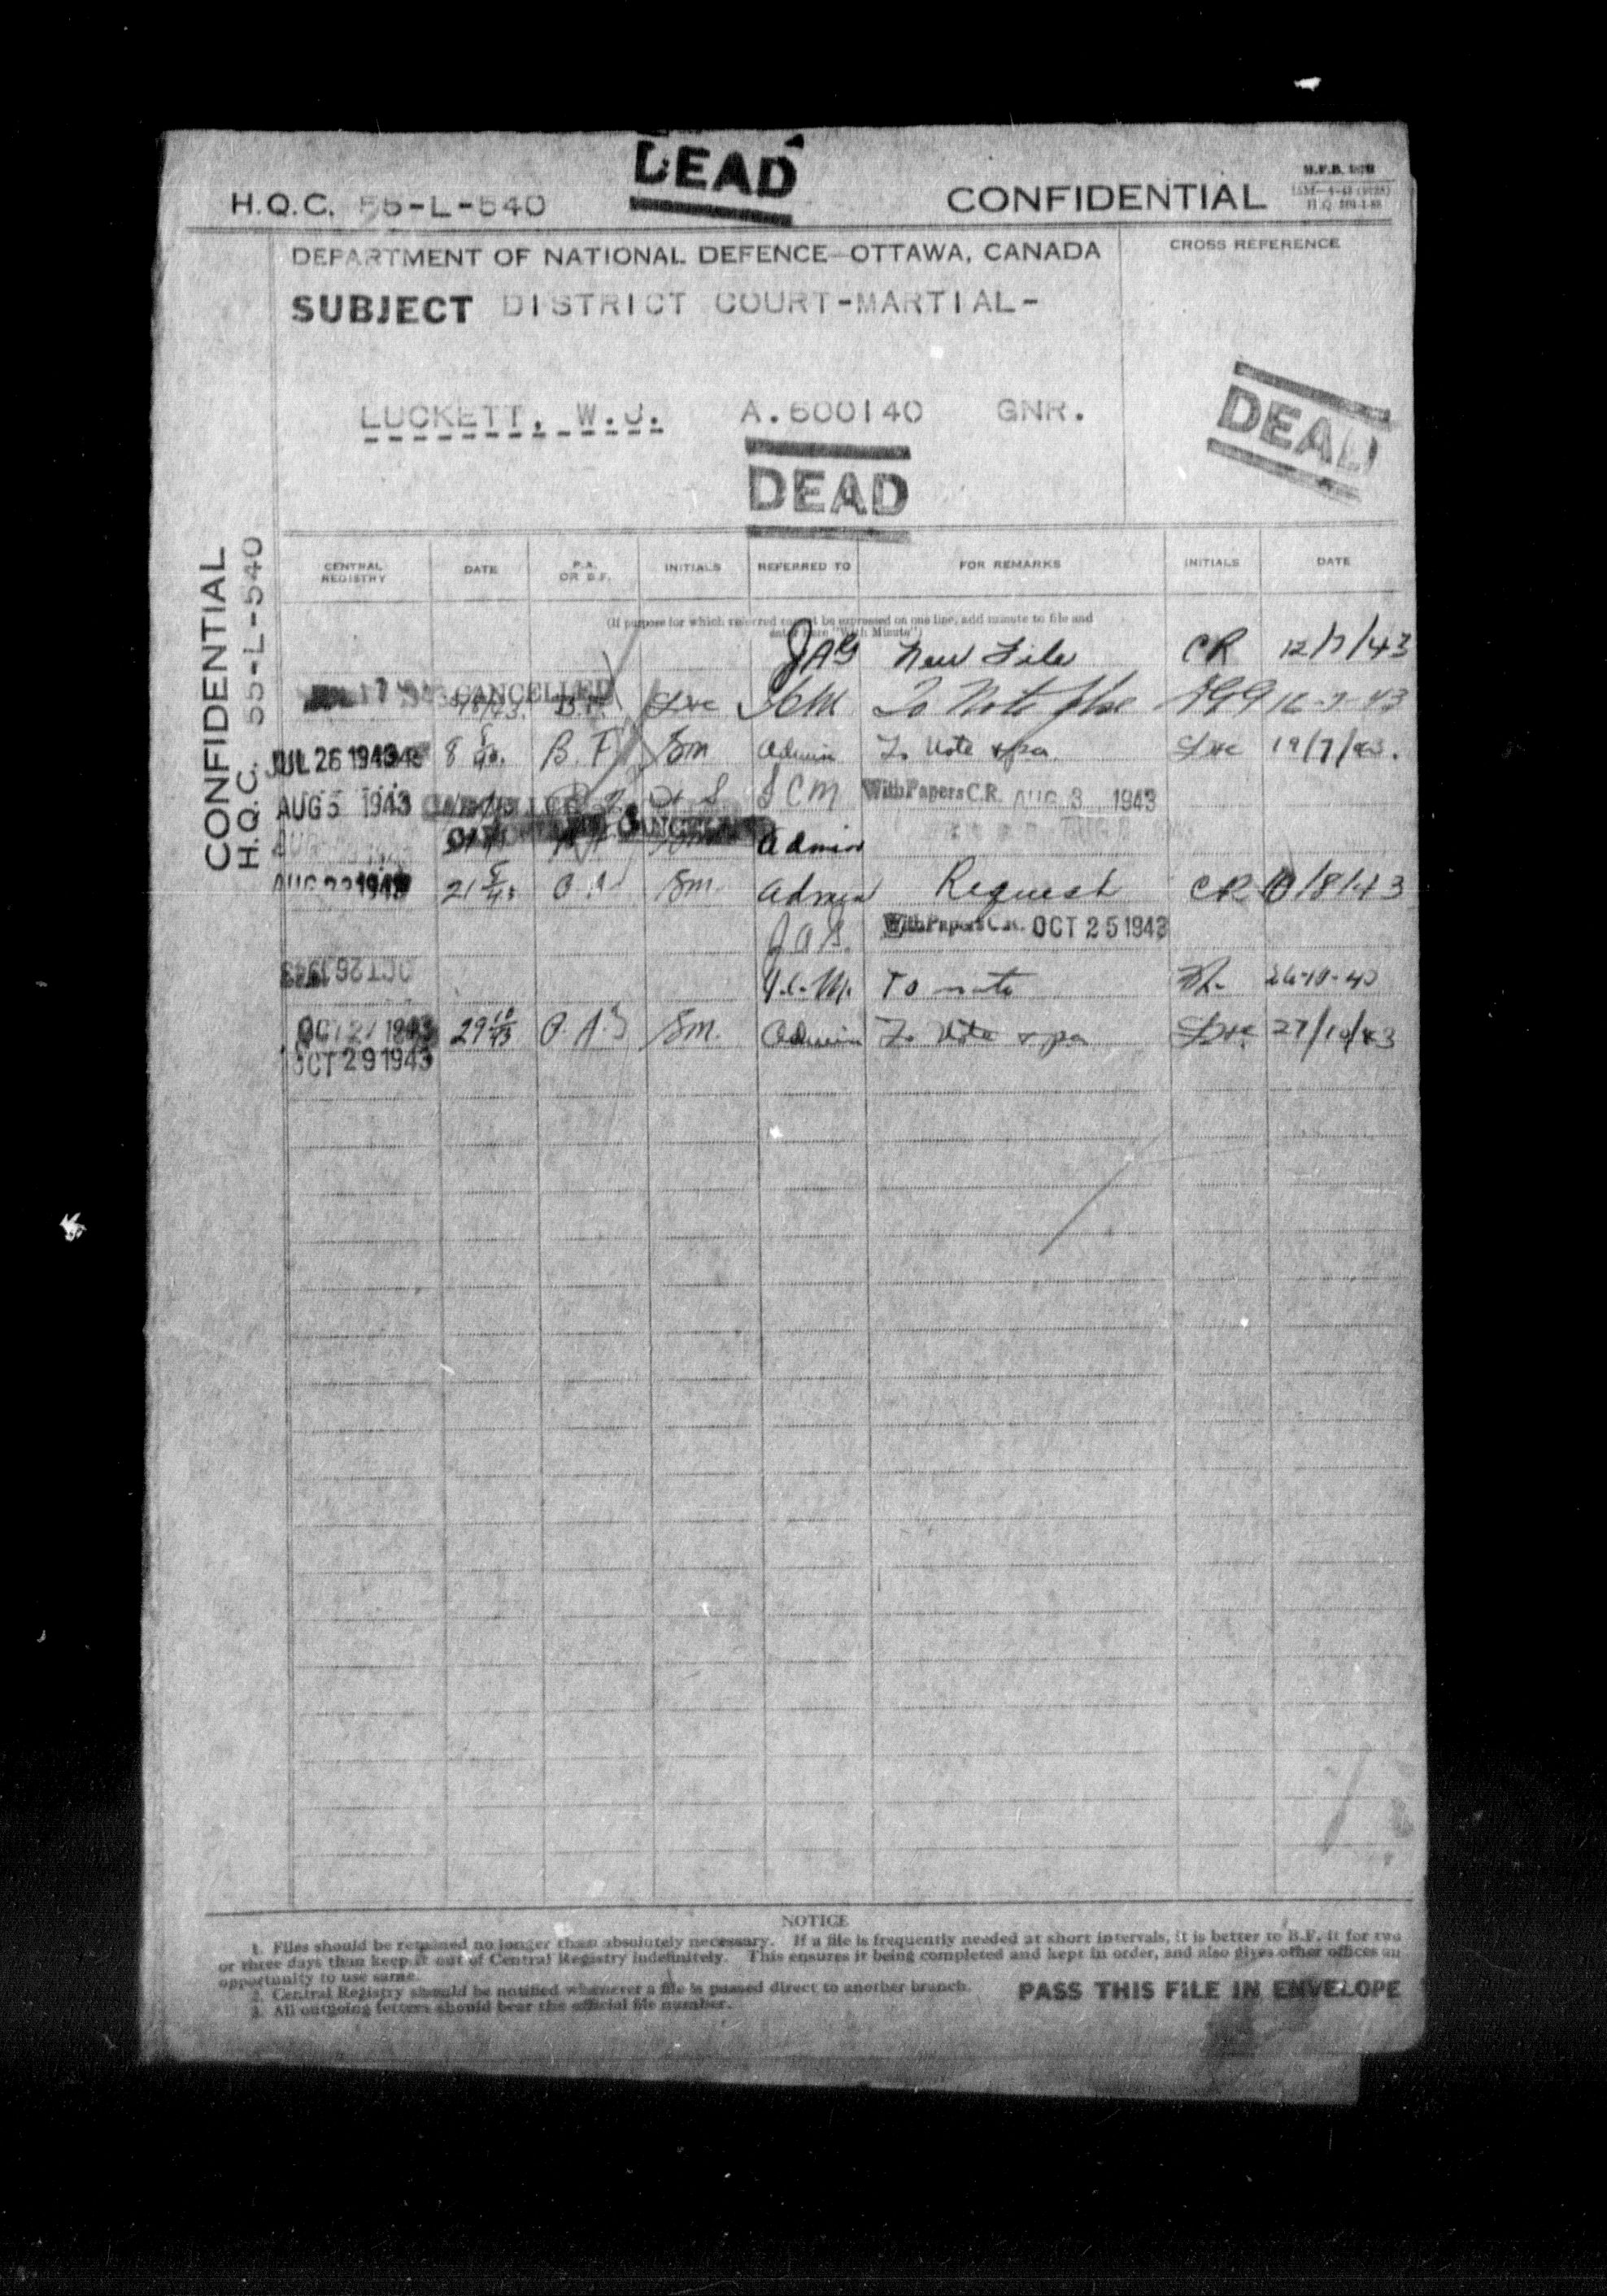 DEAD
H.Q.C. 55-L-540
CONFIDENTIAL
M.F.B.
DEPARTMENT OF NATIONAL DEFENCE—OTTAWA, CANADA
CROSS REFERENCE
SUBJECT DISTRICT COURT-MARTIAL-
LUCKETT, W.J. A.600140 GNR.
DEAD
DEAD
CONFIDENTIAL
H.Q.C. 55-L-540
CENTRAL REGISTRY DATE P.A. OR B.F. INITIALS REFERRED TO FOR REMARKS INITIALS DATE
(If purpose for which referred cannot be expressed on one line, add minute to file and
enter here "With Minute")
JAG New File CR 12/7/43
CANCELLED B.F. To Note
JUL 26 1943 8 B.F. Sm Admin To Note & pa 19/7/43.
AUG 5 1943 With Papers C.R. AUG 3 1943
CANCELLED Admin
1943 21 Sm. Admin Request CR 10/8/43
With Papers C.R. OCT 25 1943
OCT 26 1943 To note
OCT 27 1943 29 10/43 P.A. Sm. Admin To Note & pa 27/10/43
OCT 29 1943
NOTICE
1. Files should be retained no longer than absolutely necessary. If a file is frequently needed at short intervals, it is better to B.F. it for two
or three days than keep it out of Central Registry indefinitely. This ensures it being completed and kept in order, and also gives other offices an
opportunity to use same.
2. Central Registry should be notified whenever a file is passed direct to another branch.
3. All outgoing letters should bear the official file number.
PASS THIS FILE IN ENVELOPE